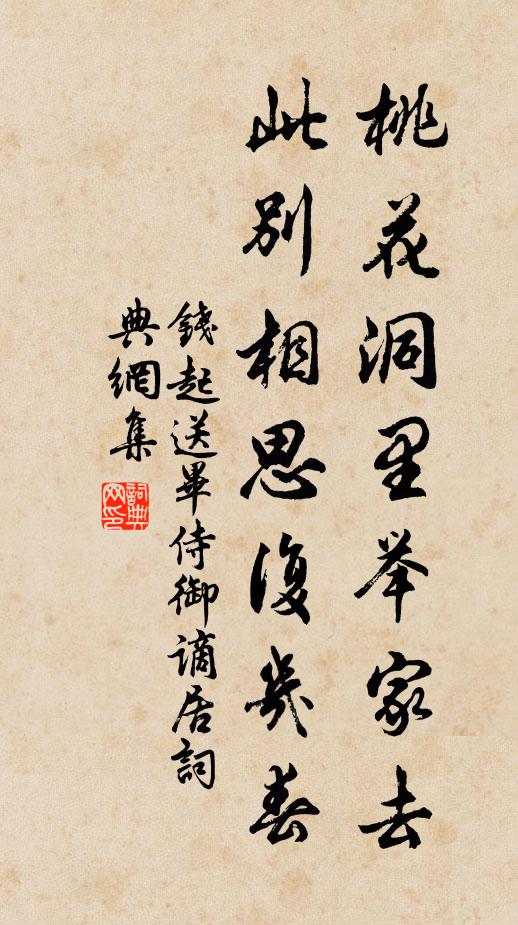 桃花洞里举家去
此别相思復幾春
錢起送畢侍御谪居詞
典網集
詞典网印